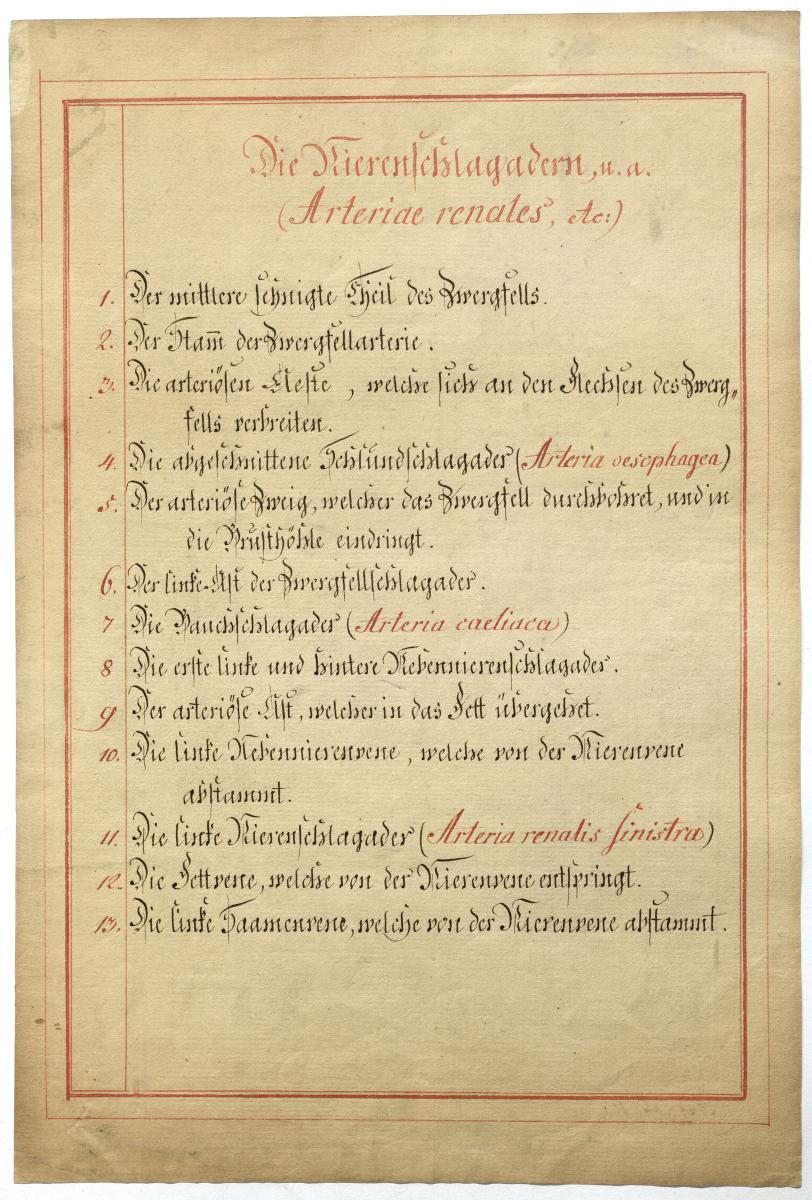 Die Nierenschlagadern, u. a.
(Arteriae renales, etc:)
1. Der mittlere sehnigte Theil des Zwergfells.
2. Der Stam̅ der Zwergfellarterie.
3. Die arteriösen Aeste, welche sich an den Flechsen des Zwerg„
fells verbreiten.
4. Die abgeschnittene Schlundschlagader (Arteria oesophagea)
5. Der arteriöse Zweig, welcher das Zwergfell durchbohret, und in
die Brusthöhle eindringt.
6. Der linke Ast der Zwergfellschlagader.
7 Die Bauchschlagader (Arteria caeliaca)
8 Die erste linke und hintere Nebennierenschlagader.
9 Der arteriöse Ast, welcher in das Fett übergehet.
10. Die linke Nebennierenvene, welche von der Nierenvene
abstammt.
11. Die linke Nierenschlagader (Arteria renalis sinistra)
12. Die Fettvene, welche von der Nierenvene entspringt.
13. Die linke Saamenvene, welche von der Nierenvene abstammt.